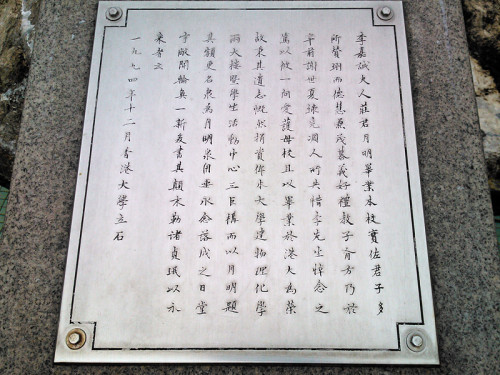 李嘉誠夫人莊君月明畢業本校實佐君子多
所贊翊而德慧兼茂慕義好禮教子有方乃於
年前謝世夏綠竟凋人所共惜李先生悼念之
篤以攸一閒愛護母校且以畢業於港大為榮
故秉其遺志慨然捐資俾本大學建物理化學
兩大樓暨學生活動中心三巨構而以月明題
其額更名泉為月明泉用垂永念落成之日堂
宇敞閎輪奐一新爰書其顛末勒諸貞珉以永
來者云
一九九四年十二月香港大學立石